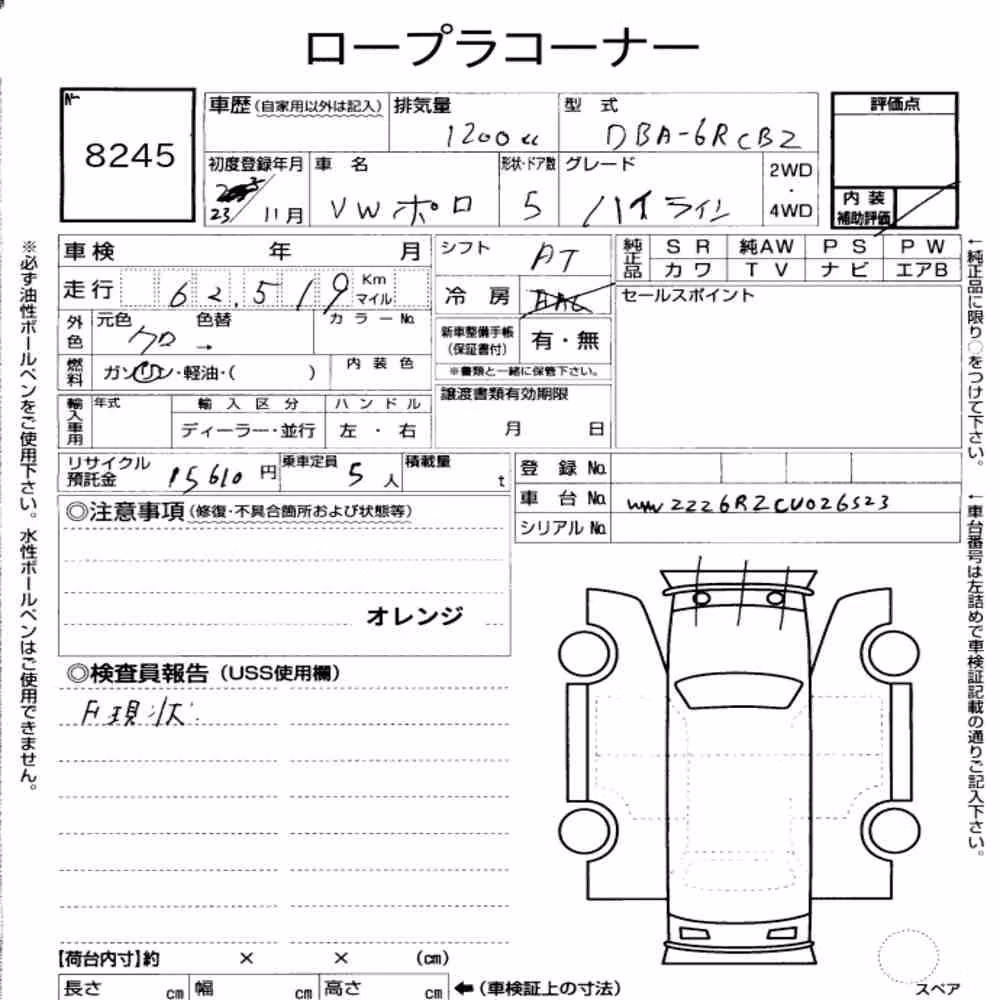 ロープラコーナー
No
8245
車歴 (自家用以外は記入) 排気量 1200cc 型式 DBA-6RCBZ 評価点
初度登録年月 23/11月 車名 VW ポロ 形状・ドア数 5 グレード ハイライン 2WD・4WD
内装補助評価
車検 年 月
走行 62,519 Km マイル
外色 元色 クロ 色替 → カラーNo.
燃料 ガソリン・軽油・( ) 内装色
輸入車用 年式 輸入区分 ハンドル
ディーラー・並行 左・右
シフト AT
冷房
新車整備手帳 (保証書付) 有・無
※書類と一緒に保管下さい。
譲渡書類有効期限
月 日
純正品 SR 純AW PS PW
カワ TV ナビ エアB
セールスポイント
リサイクル預託金 15610円 乗車定員 5人 積載量 t
登録No.
車台No. WVWZZZ6RZCU026523
シリアルNo.
◎注意事項 (修復・不具合箇所および状態等)
オレンジ
◎検査員報告 (USS使用欄)
現状
【荷台内寸】約 × × (cm)
長さ cm 幅 cm 高さ cm ←(車検証上の寸法)
スペア
※必ず油性ボールペンをご使用下さい。水性ボールペンはご使用できません。
←純正品に限り○をつけて下さい。
←車台番号は左詰めで車検証記載の通りご記入下さい。